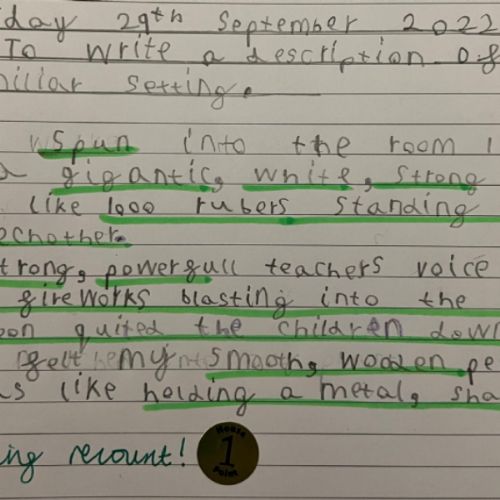 day 29th September 2022
To write a description of
miliar setting.
I spun into the room I
a gigantic, white, strong
like 1000 rubers standing
echother.
trong, powerfull teachers voice
fireworks blasting into the
oon quited the children down
felt my smooth, wooden pe
as like holding a metal, sha
ing recount!
House
1
Point